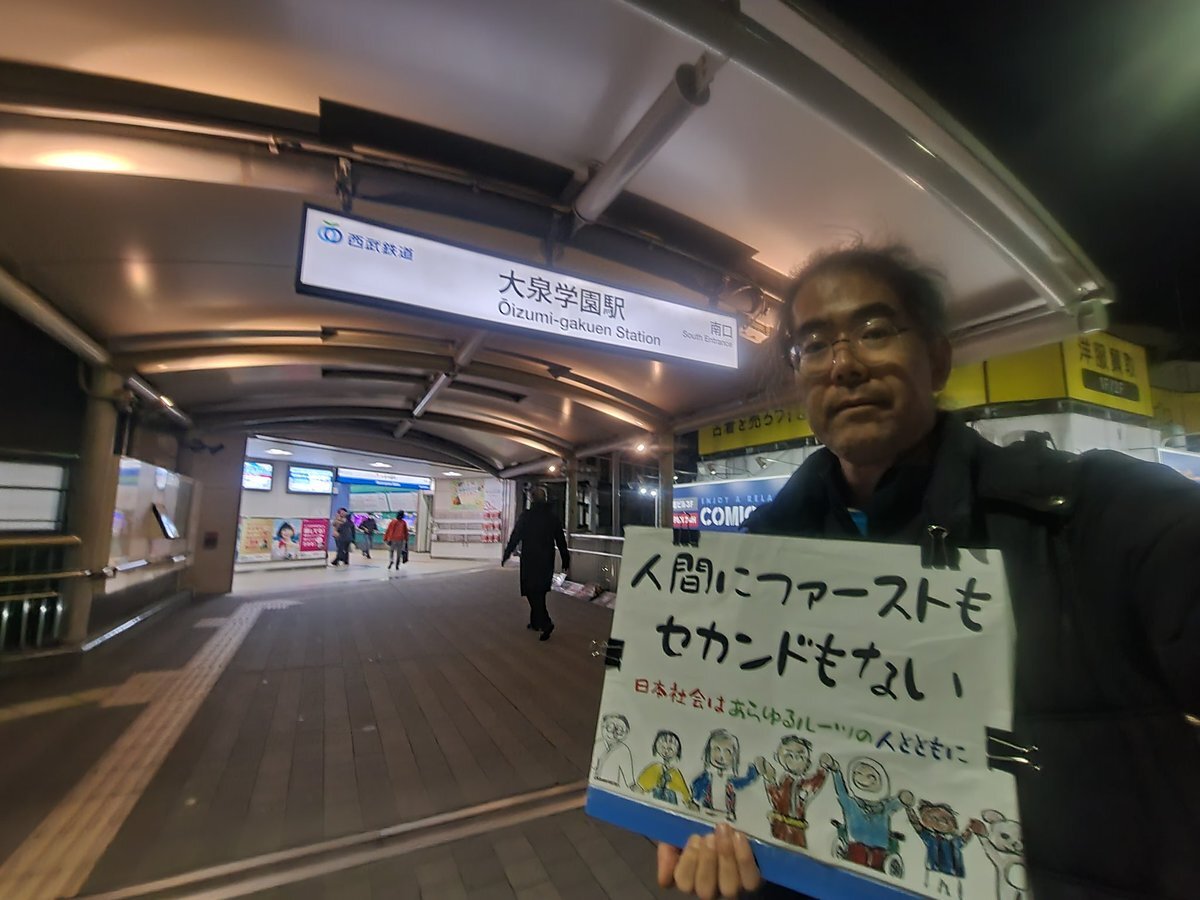 西武鉄道
大泉学園駅
Ōizumi-gakuen Station
南口
South Entrance
洋服買取
古着を売るなら
ENJOY A RELA
COMIC
人間にファーストも
セカンドもない
日本社会はあらゆるルーツの人とともに